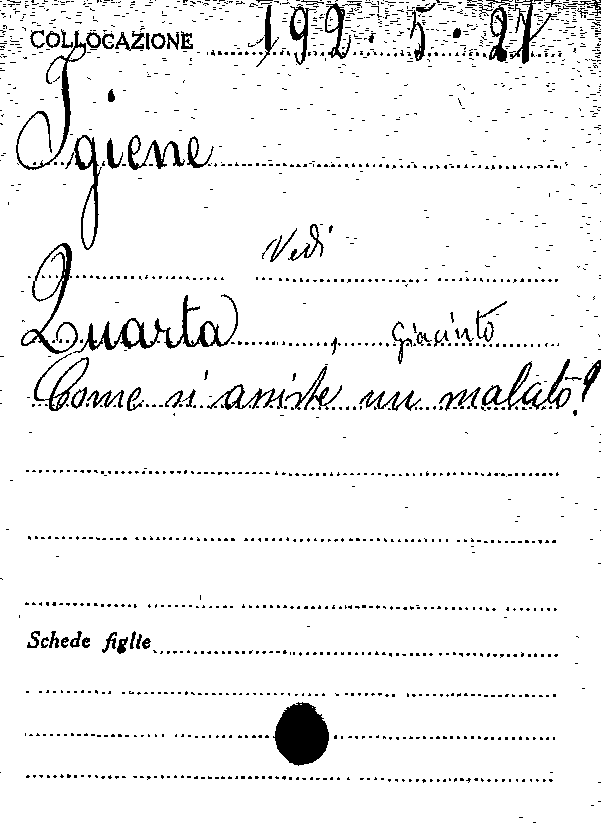 COLLOCAZIONE 192.5.27
Igiene
Vedi
Quarta, Giacinto
Come si assiste un malato?
Schede figlie